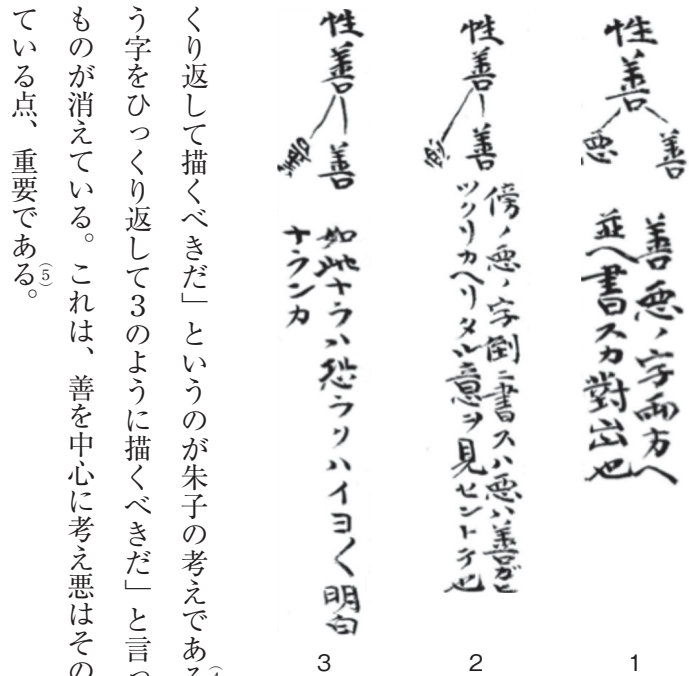 性善
善
悪
善悪ノ字両方へ
並へ書スカ對出也
性善
善
悪
傍ノ悪ノ字倒ニ書スハ悪ハ善ガヒ
ツクリカヘリタル意ヲ見セントテ也
性善
善
如此ナラハ恐ラクハイヨ〱明白
ナランカ
1
2
3
くり返して描くべきだ」というのが朱子の考えである
う字をひっくり返して3のように描くべきだ」と言っ
ものが消えている。これは、善を中心に考え悪はその
ている点、重要である。(5)